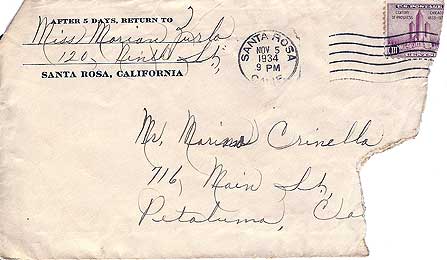 AFTER 5 DAYS, RETURN TO
Miss Marian Zurlo
120,
St,
SANTA ROSA, CALIFORNIA
SANTA ROSA
NOV 5
1934
9 PM
CALIF.
U.S. POSTAGE
CENTURY OF PROGRESS
CHICAGO
Mr. Marino Crinella
716, Main St,
Petaluma, Ca